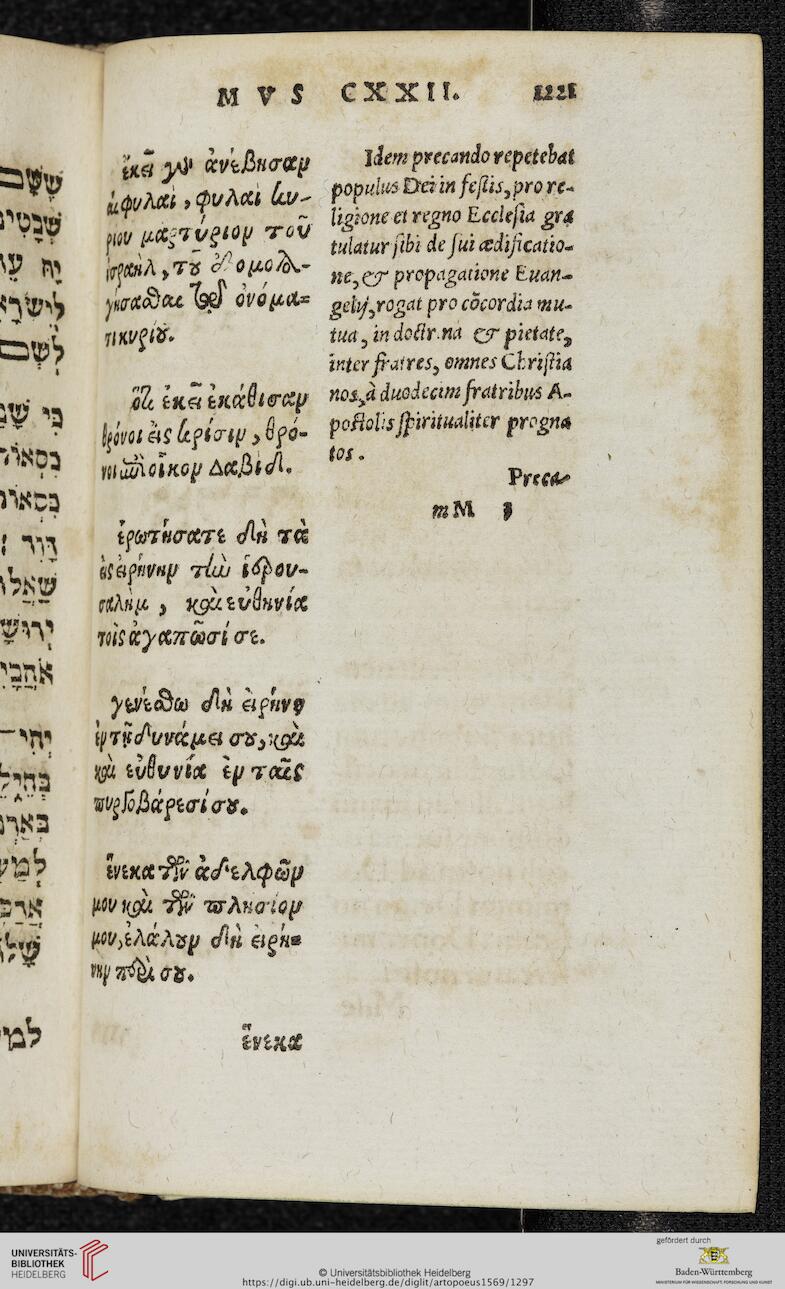 MVS CXXII. 1221
ἐκεῖ γὰρ ἀνέβησαν
αἱ φυλαὶ, φυλαὶ κυ-
ρίου μαρτύριον τοῦ
ἰσραὴλ, τȣ͂ ἐξομολο-
γήσασθαι τῷ ὀνόμα=
τι κυρίȣ.
ὅτι ἐκεῖ ἐκάθισαν
θρόνοι εἰς κρίσιν, θρό-
νοι ἐπὶ οἶκον Δαβίδ.
ἐρωτήσατε δὴ τὰ
εἰς εἰρήνην τὴν ἱερου-
σαλὴμ, καὶ εὐθηνία
τοῖς ἀγαπῶσί σε.
γενέσθω δὴ εἰρήνη
ἐν τῇ δυνάμει σȣ, καὶ
καὶ εὐθυνία ἐν ταῖς
πυργοβάρεσί σȣ.
ἕνεκα τῶν ἀδελφῶν
μου καὶ τῶν πλησίον
μου, ἐλάλȣν δὴ εἰρή=
νην περὶ σȣ.
ἕνεκα
Idem precando repetebat
populus Dei in festis, pro re-
ligione et regno Ecclesia gra
tulatur sibi de sui ædificatio-
ne, & propagatione Euan-
gelij, rogat pro cõcordia mu-
tua, in doctr.na & pietate,
inter fratres, omnes Christia
nos, à duodecim fratribus A-
postolis spiritualiter progna
tos.
Preca-
mM 3
שֶׁשָּׁם
שִׁבְטֵי
יָהּ
לְיִשְׂרָ
לְשֵׁם
כִּי
כִסְאוֹ
כִּסְאוֹ
דָּוִד
שַׁאֲלוּ
יְרוּשָׁ
אֹהֲבָי
יְהִי
בְּחֵילֵ
לְמַעַ
למע
UNIVERSITÄTS-
BIBLIOTHEK
HEIDELBERG
© Universitätsbibliothek Heidelberg
https://digi.ub.uni-heidelberg.de/diglit/artopoeus1569/1297
gefördert durch
Baden-Württemberg
MINISTERIUM FÜR WISSENSCHAFT, FORSCHUNG UND KUNST